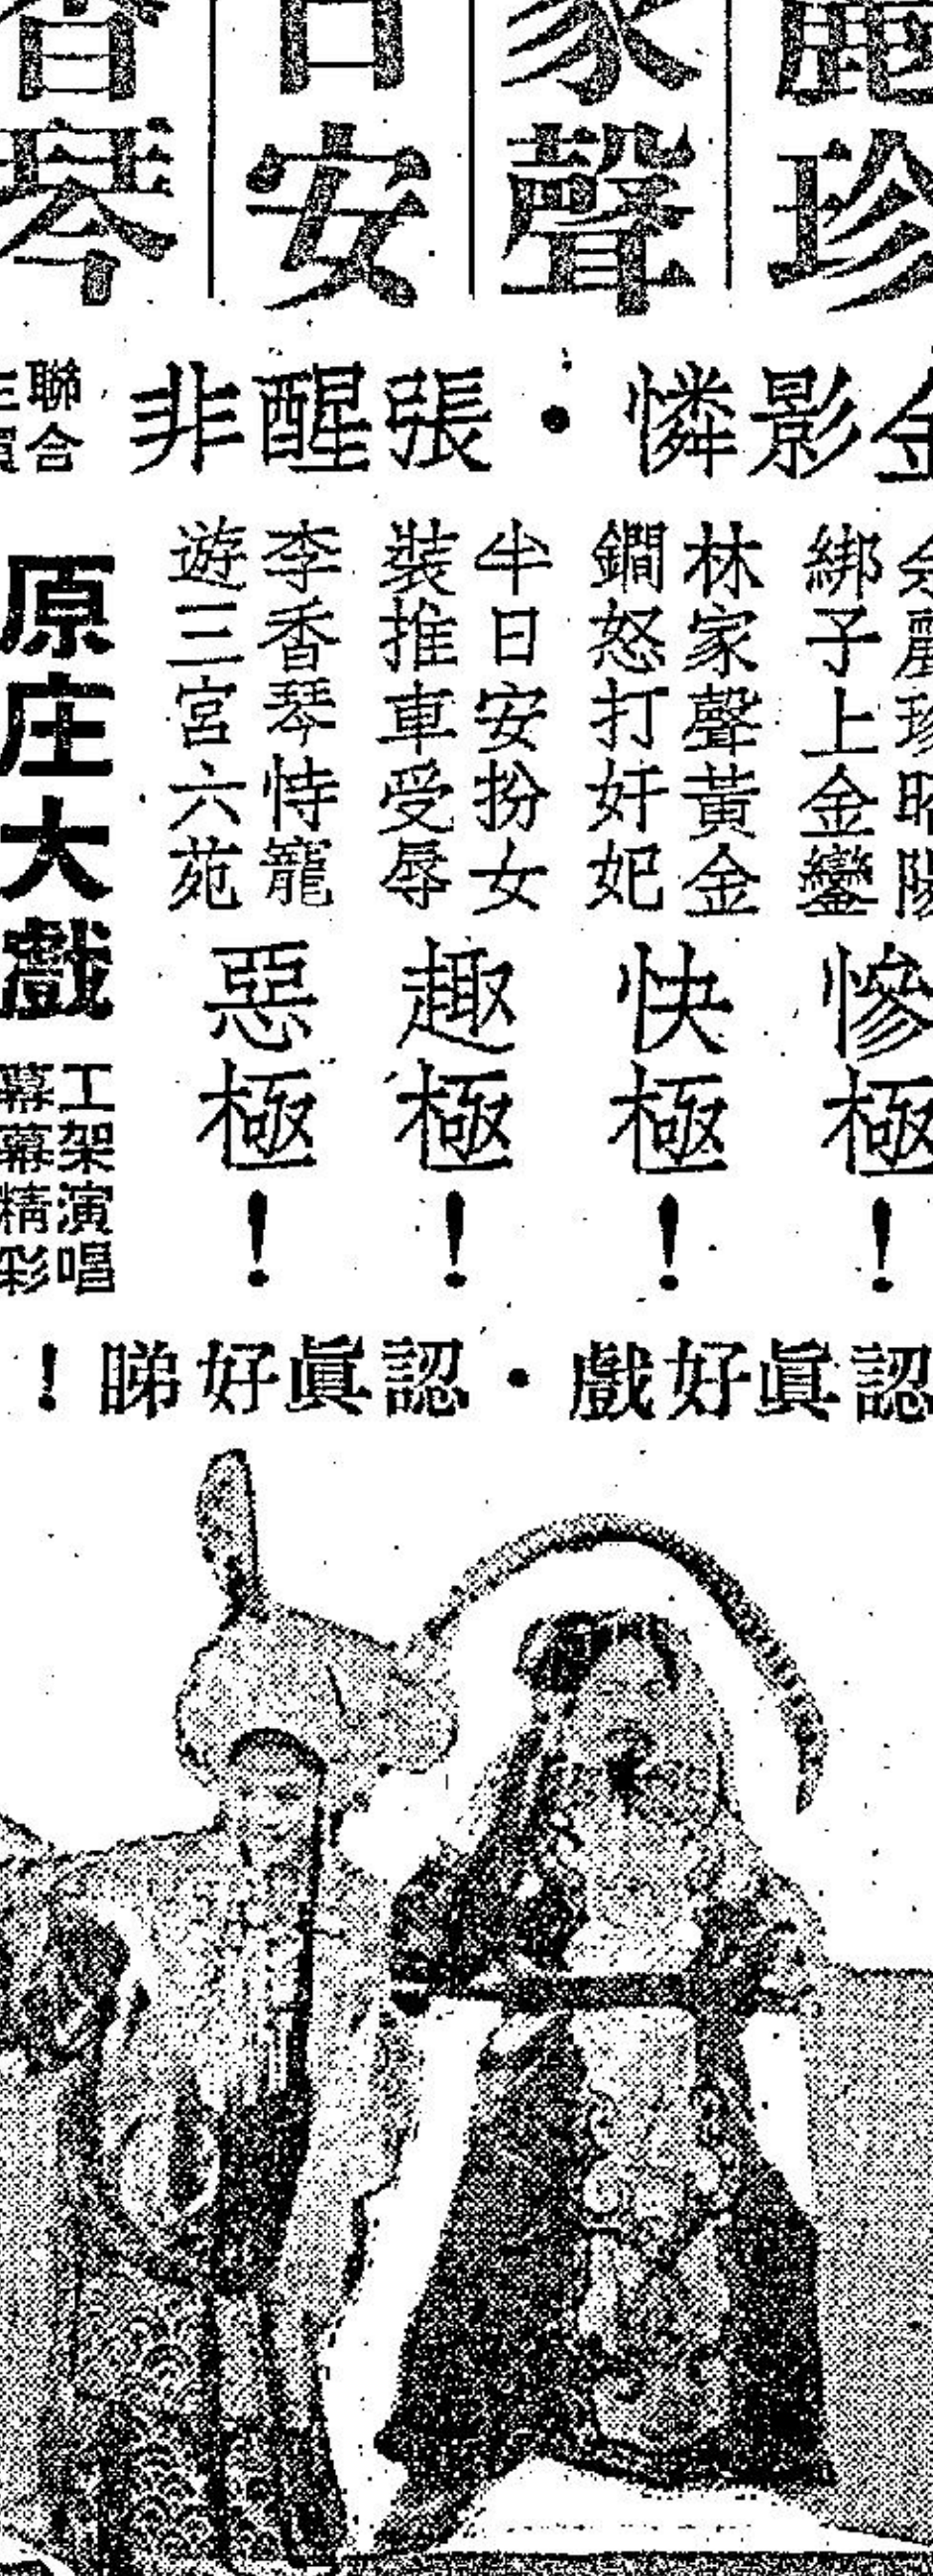 麗珍
家聲
日安
香琴
金影憐·張醒非
聯合
余麗珍昭陽
綁子上金鑾
慘極
林家聲黃金
鐧怒打奸妃
快極！
半日安扮女
裝推車受辱
趣極！
李香琴恃寵
遊三宮六苑
惡極！
原庄大戲
工架演唱
幕幕精彩
認眞好戲·認眞好睇！